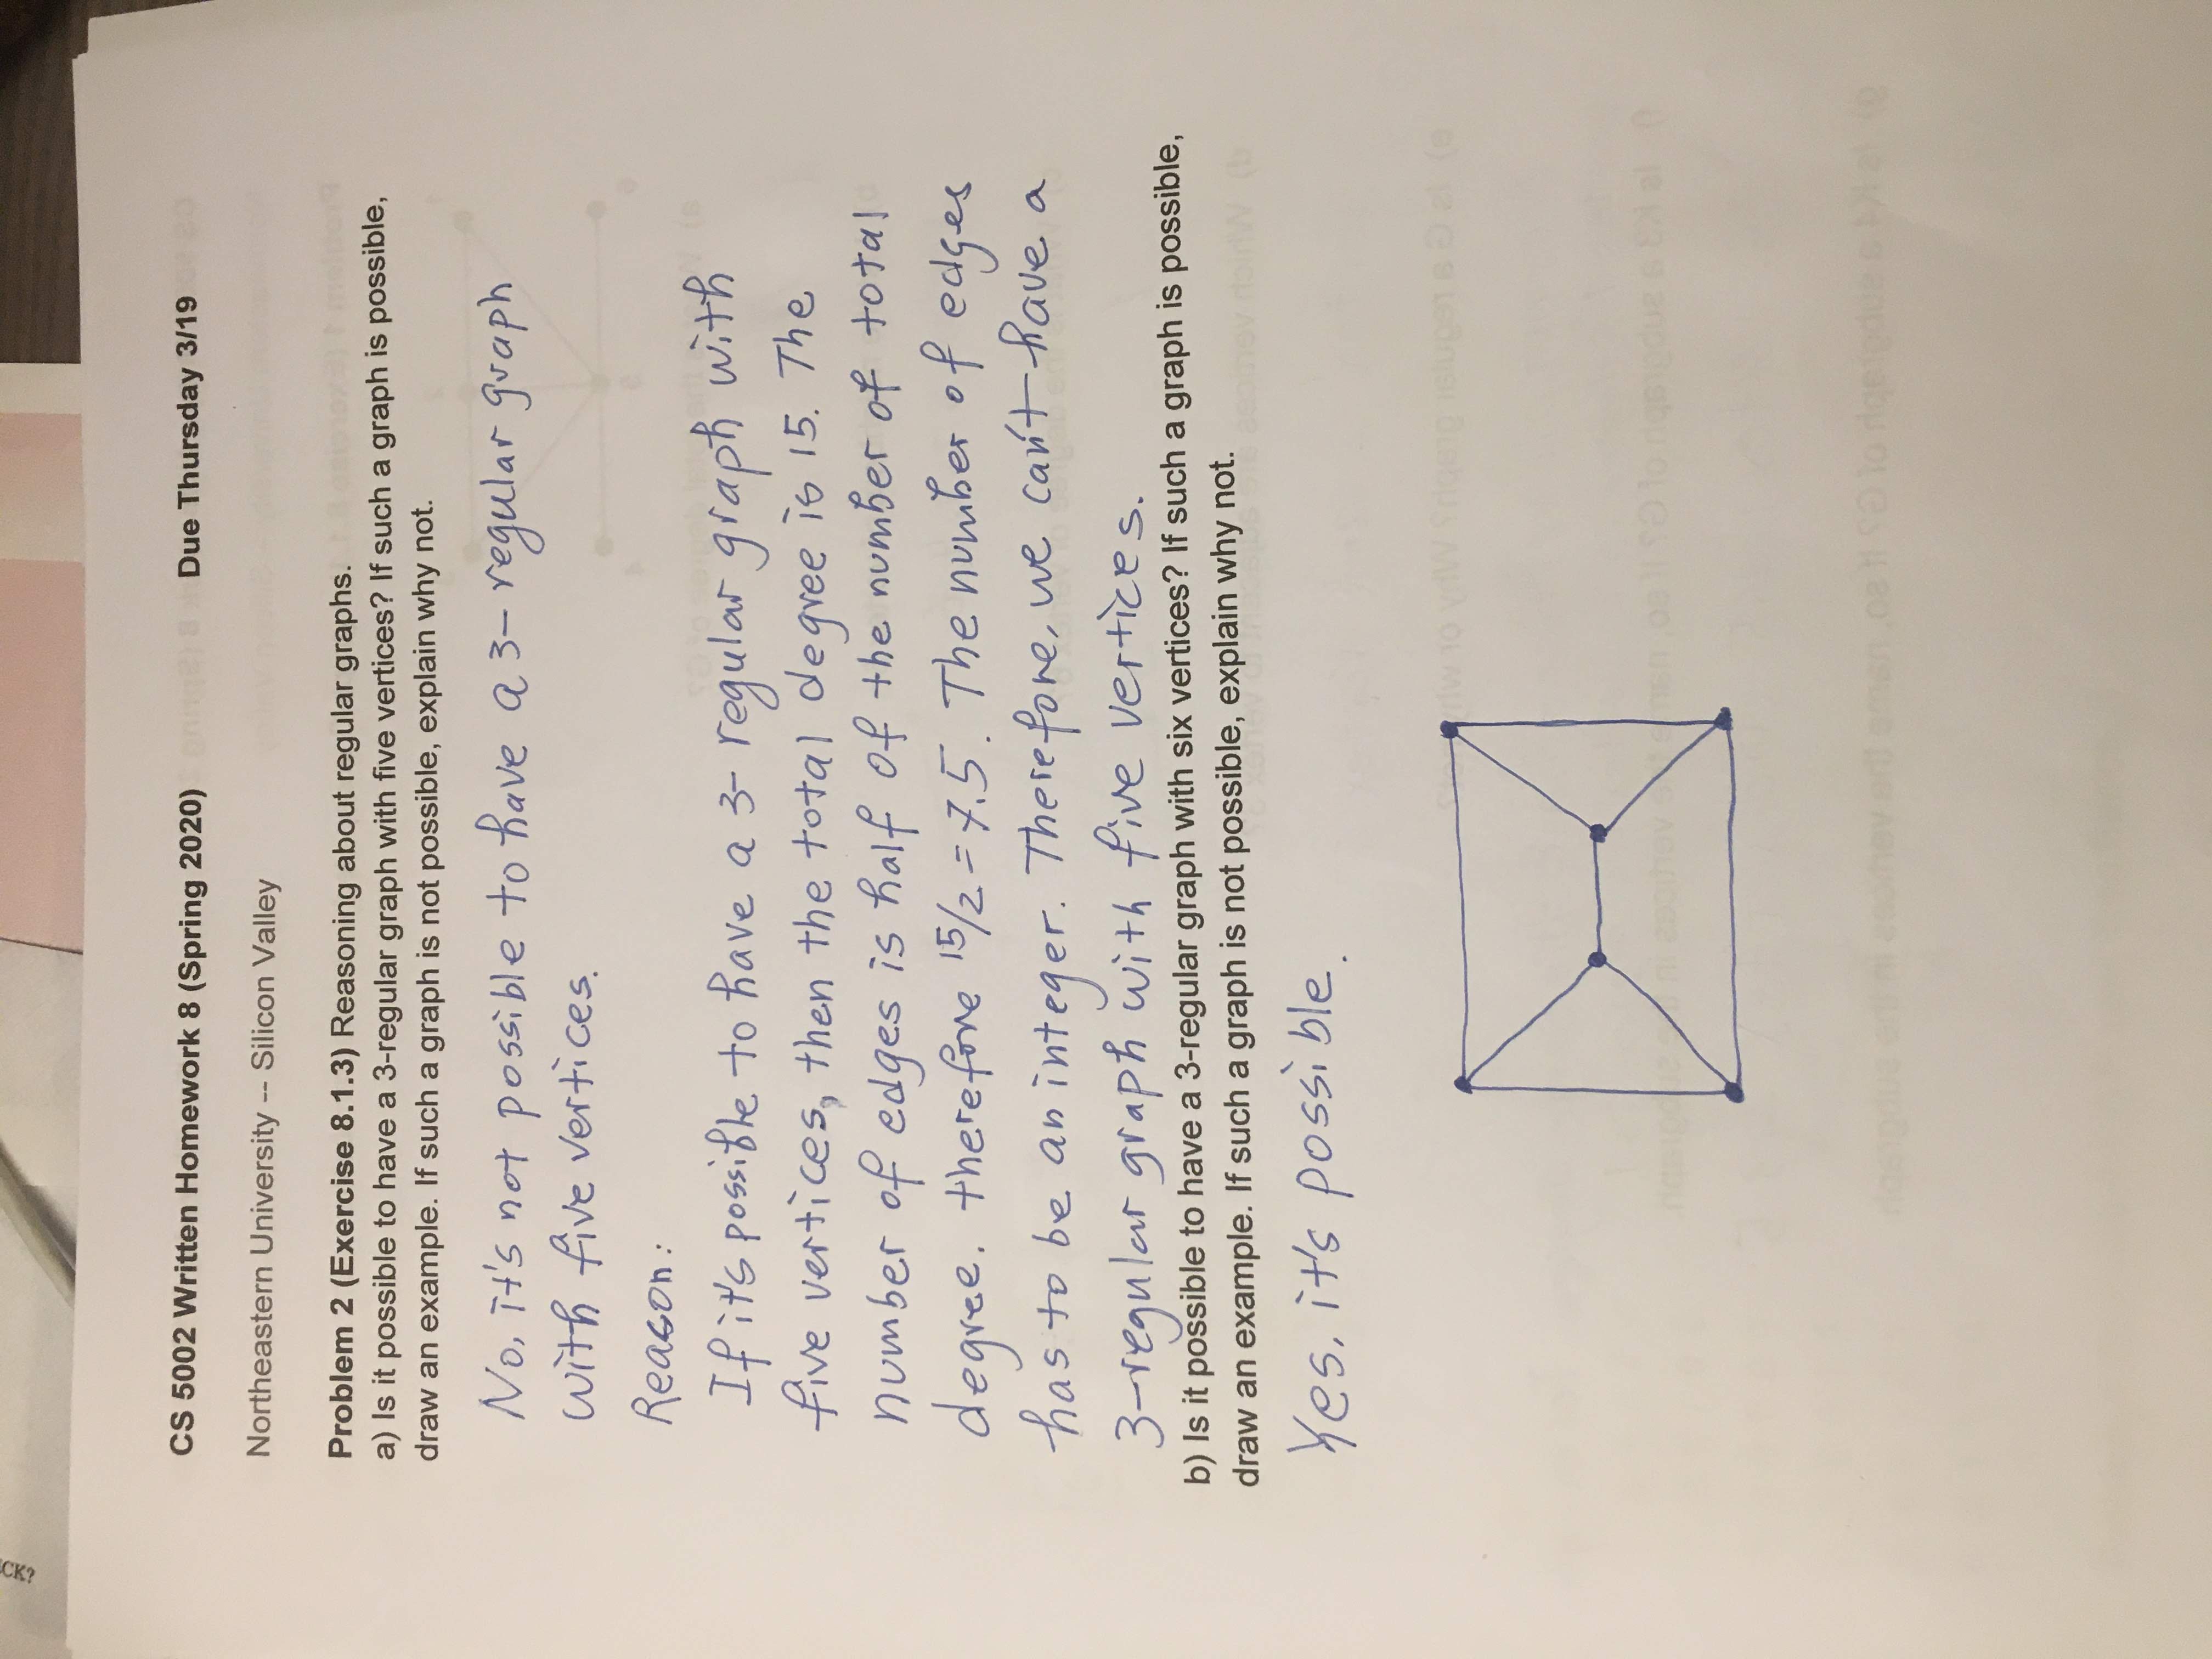 CS 5002 Written Homework 8 (Spring 2020) Due Thursday 3/19
Northeastern University -- Silicon Valley
Problem 2 (Exercise 8.1.3) Reasoning about regular graphs.
a) Is it possible to have a 3-regular graph with five vertices? If such a graph is possible,
draw an example. If such a graph is not possible, explain why not.
No, it's not possible to have a 3-regular graph
with five vertices.
Reason:
If it's possible to have a 3-regular graph with
five vertices, then the total degree is 15. The
number of edges is half of the number of total
degree. therefore 15/2 = 7.5. The number of edges
has to be an integer. Therefore, we can't have a
3-regular graph with five vertices.
b) Is it possible to have a 3-regular graph with six vertices? If such a graph is possible,
draw an example. If such a graph is not possible, explain why not.
Yes, it's possible.
CK?